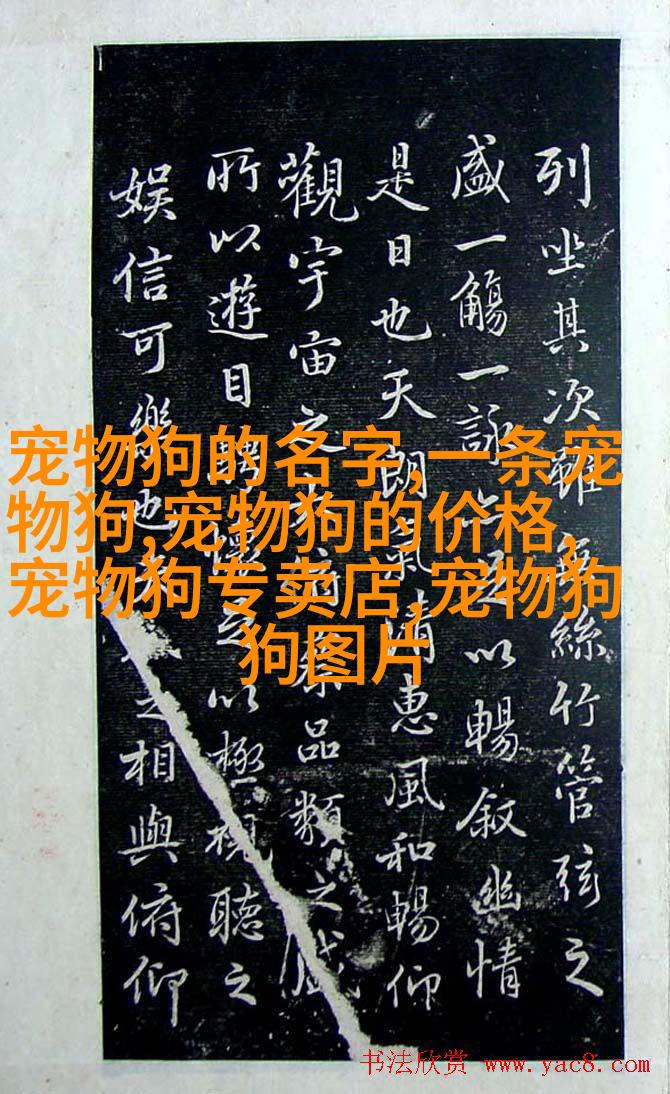 列坐其次雖無絲竹管弦之
盛一觴一詠亦足以暢敘幽情
是日也天朗氣清惠風和暢仰
觀宇宙之大俯察品類之盛
所以遊目騁懷足以極視聽之
娛信可樂也夫之相與俯仰
宠物狗的名字,一条宠
物狗,宠物狗的价格,
宠物狗专卖店,宠物狗
狗图片
书法欣赏 www.yac8.com